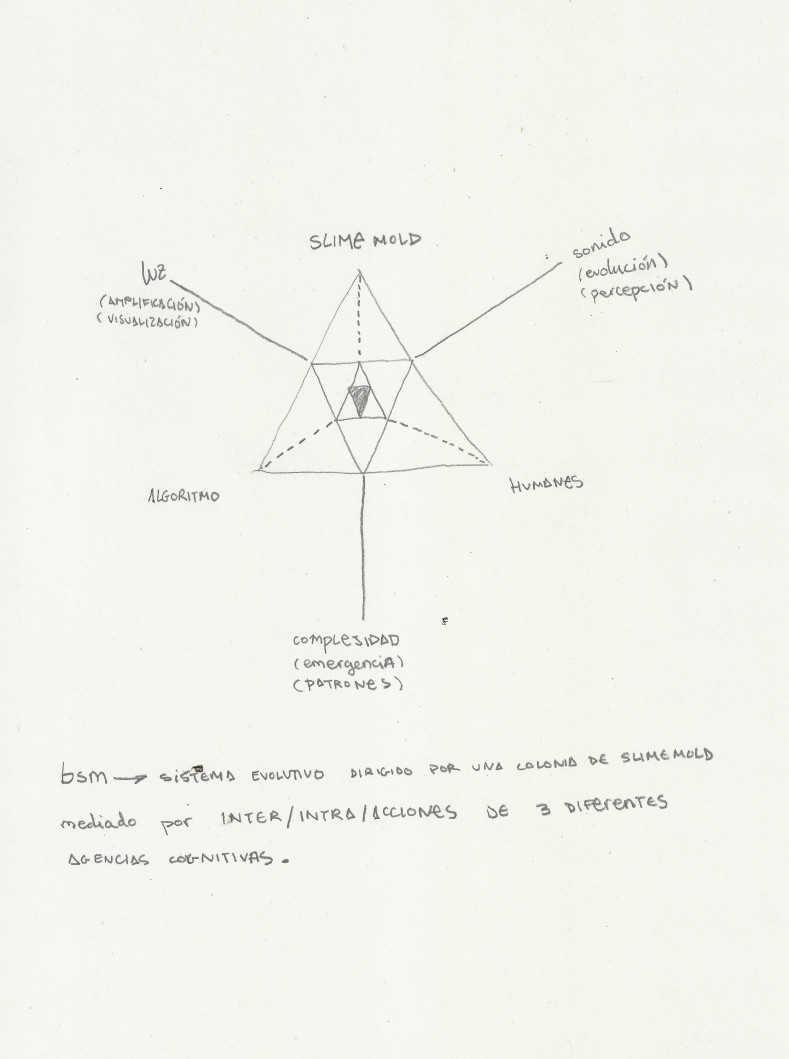 SLIME MOLD
luz
(AMPLIFICACIÓN)
(VISUALIZACIÓN)
sonido
(evolución)
(percepción)
ALGORITMO
HUMANES
COMPLEJIDAD
(emergencia)
(PATRONES)
bsm → SISTEMA EVOLUTIVO DIRIGIDO POR UNA COLONIA DE SLIME MOLD
mediado por INTER/INTRA/ACCIONES DE 3 DIFERENTES
AGENCIAS COGNITIVAS.